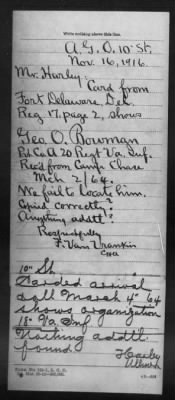 Write nothing above this line.
A.G.O. 10" St.
Nov. 16, 1916.
Mr. Hurley:
Card from
Fort Delaware, Del.
Reg 17, page 2, shows
Geo. O. Bowman
Pt. Co. A 20 Regt Va. Inf.
Rec'd from Camp Chase
Mch 2/64.
We fail to locate him.
Copied correctly?
Anything addtl?
Respectfully
F. Van Vrankin
10" St.
Carded arrival
roll March 4" 64
shows organization
18" Va Inf
Nothing addtl.
found